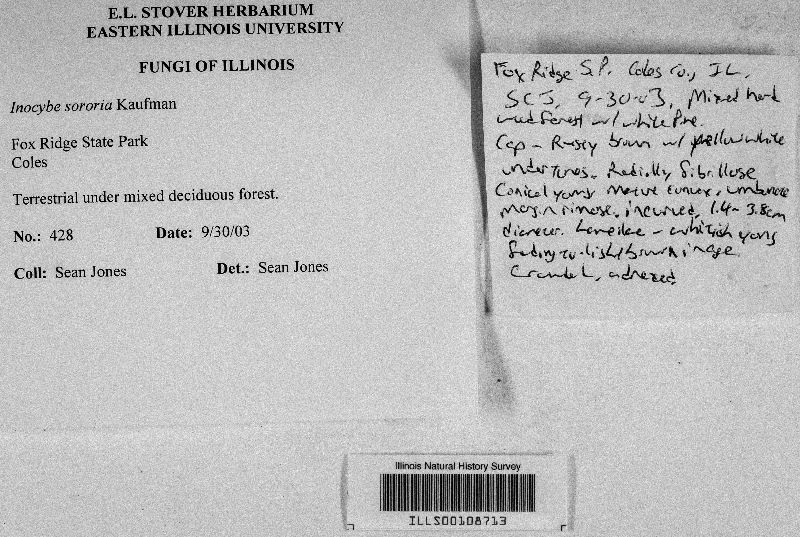 E.L. STOVER HERBARIUM
EASTERN ILLINOIS UNIVERSITY
FUNGI OF ILLINOIS
Inocybe sororia Kaufman
Fox Ridge State Park
Coles
Terrestrial under mixed deciduous forest.
No.: 428 Date: 9/30/03
Coll: Sean Jones Det.: Sean Jones
Fox Ridge S.P. Coles Co., IL,
SCJ, 9-30-03, Mixed hard
wood forest w/ white Pine.
Cap - Rusty brown w/ yellow white
undertones. Radially fibrillose
Conical young mature convex, umbonate
margin rimose, incurved, 1.4-3.8cm
diameter. Lamellae - whitish young
fading to light brown in age.
Crowded, adnexed
Illinois Natural History Survey
ILLS00108713